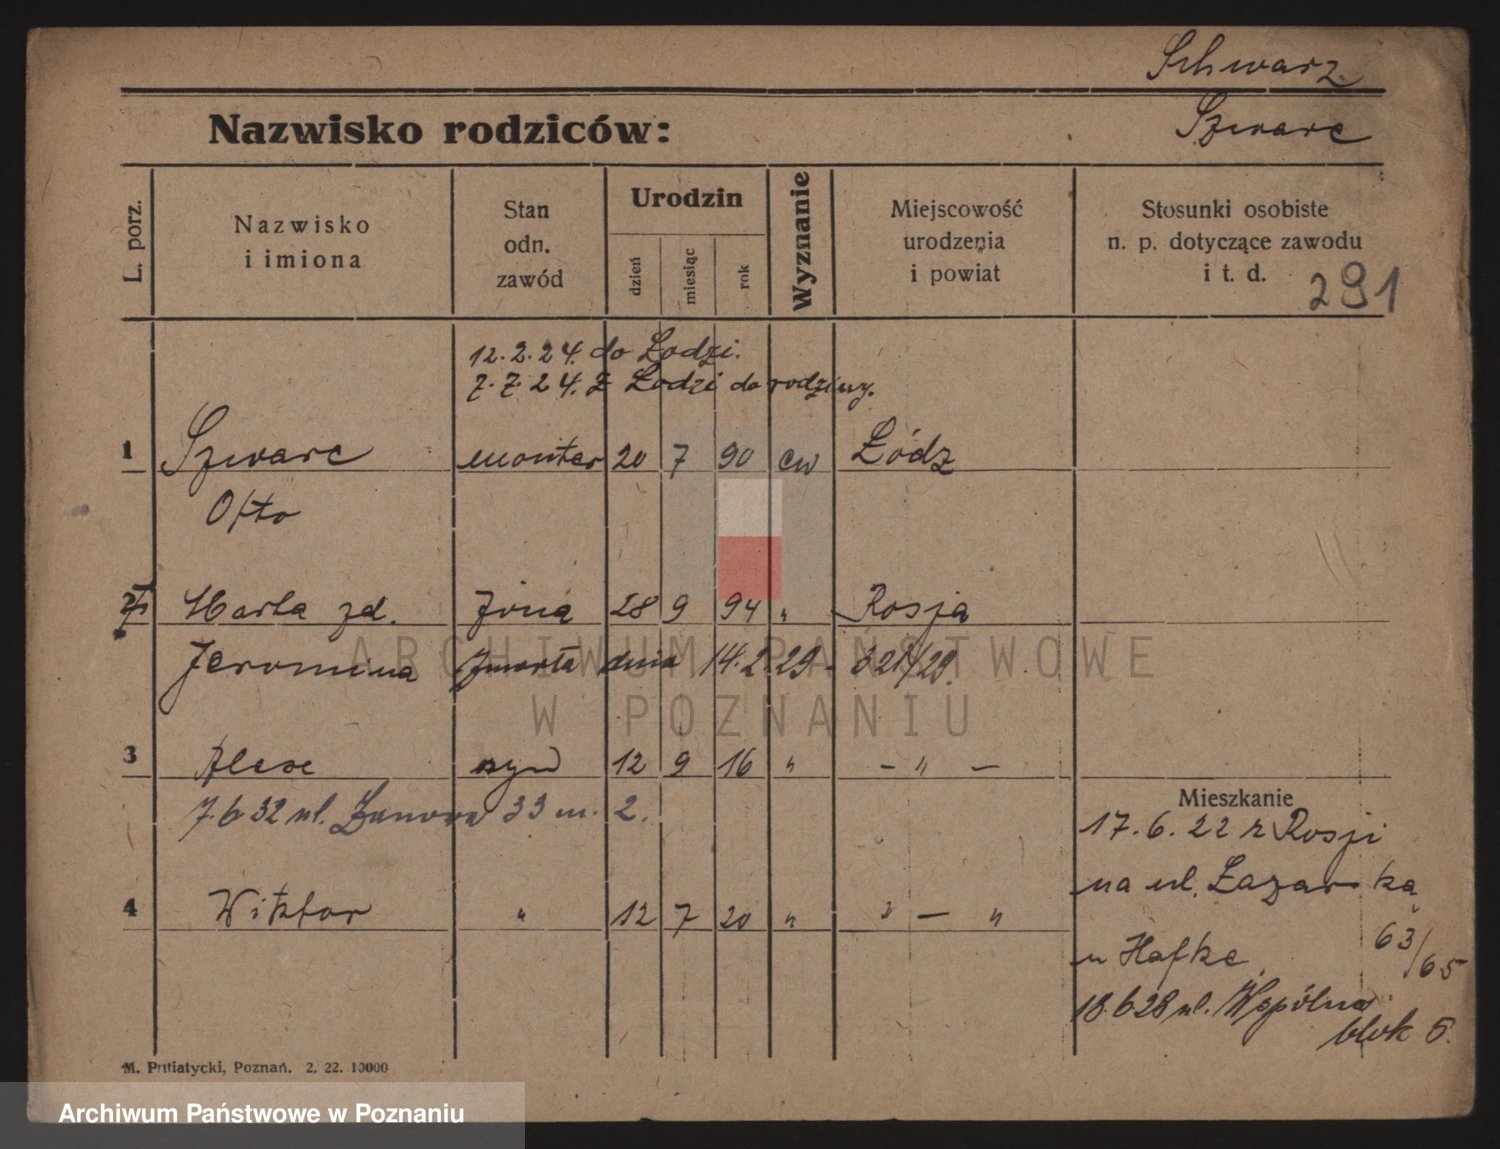 Schwarz
Nazwisko rodziców:
Szwarc
L. porz.
Nazwisko
i imiona
Stan
odn.
zawód
Urodzin
dzień
miesiąc
rok
Wyznanie
Miejscowość
urodzenia
i powiat
Stosunki osobiste
n. p. dotyczące zawodu
i t. d.
291
12.2.24. do Łodzi.
7.7.24. z Łodzi do rodziny.
1 Szwarc monter 20 7 90 ew Łódz
Otto
2 Marta zd. żona 28 9 94 „ Rosja
Jeromina zmarła dnia 14.2.29 - 321/29.
3 syn 12 9 16 „ — „ —
7.6 32 ul. 33 m. 2.
Mieszkanie
17.6.22 z Rosji
na ul. Łazarska
63/65
4 Wiktor „ 12 7 20 „ „ — „
u Hafke
18.6 28 ul. Wspólna
blok 5.
M. Putiatycki, Poznań. 2. 22. 10000
ARCHIWUM PAŃSTWOWE
W POZNANIU
Archiwum Państwowe w Poznaniu